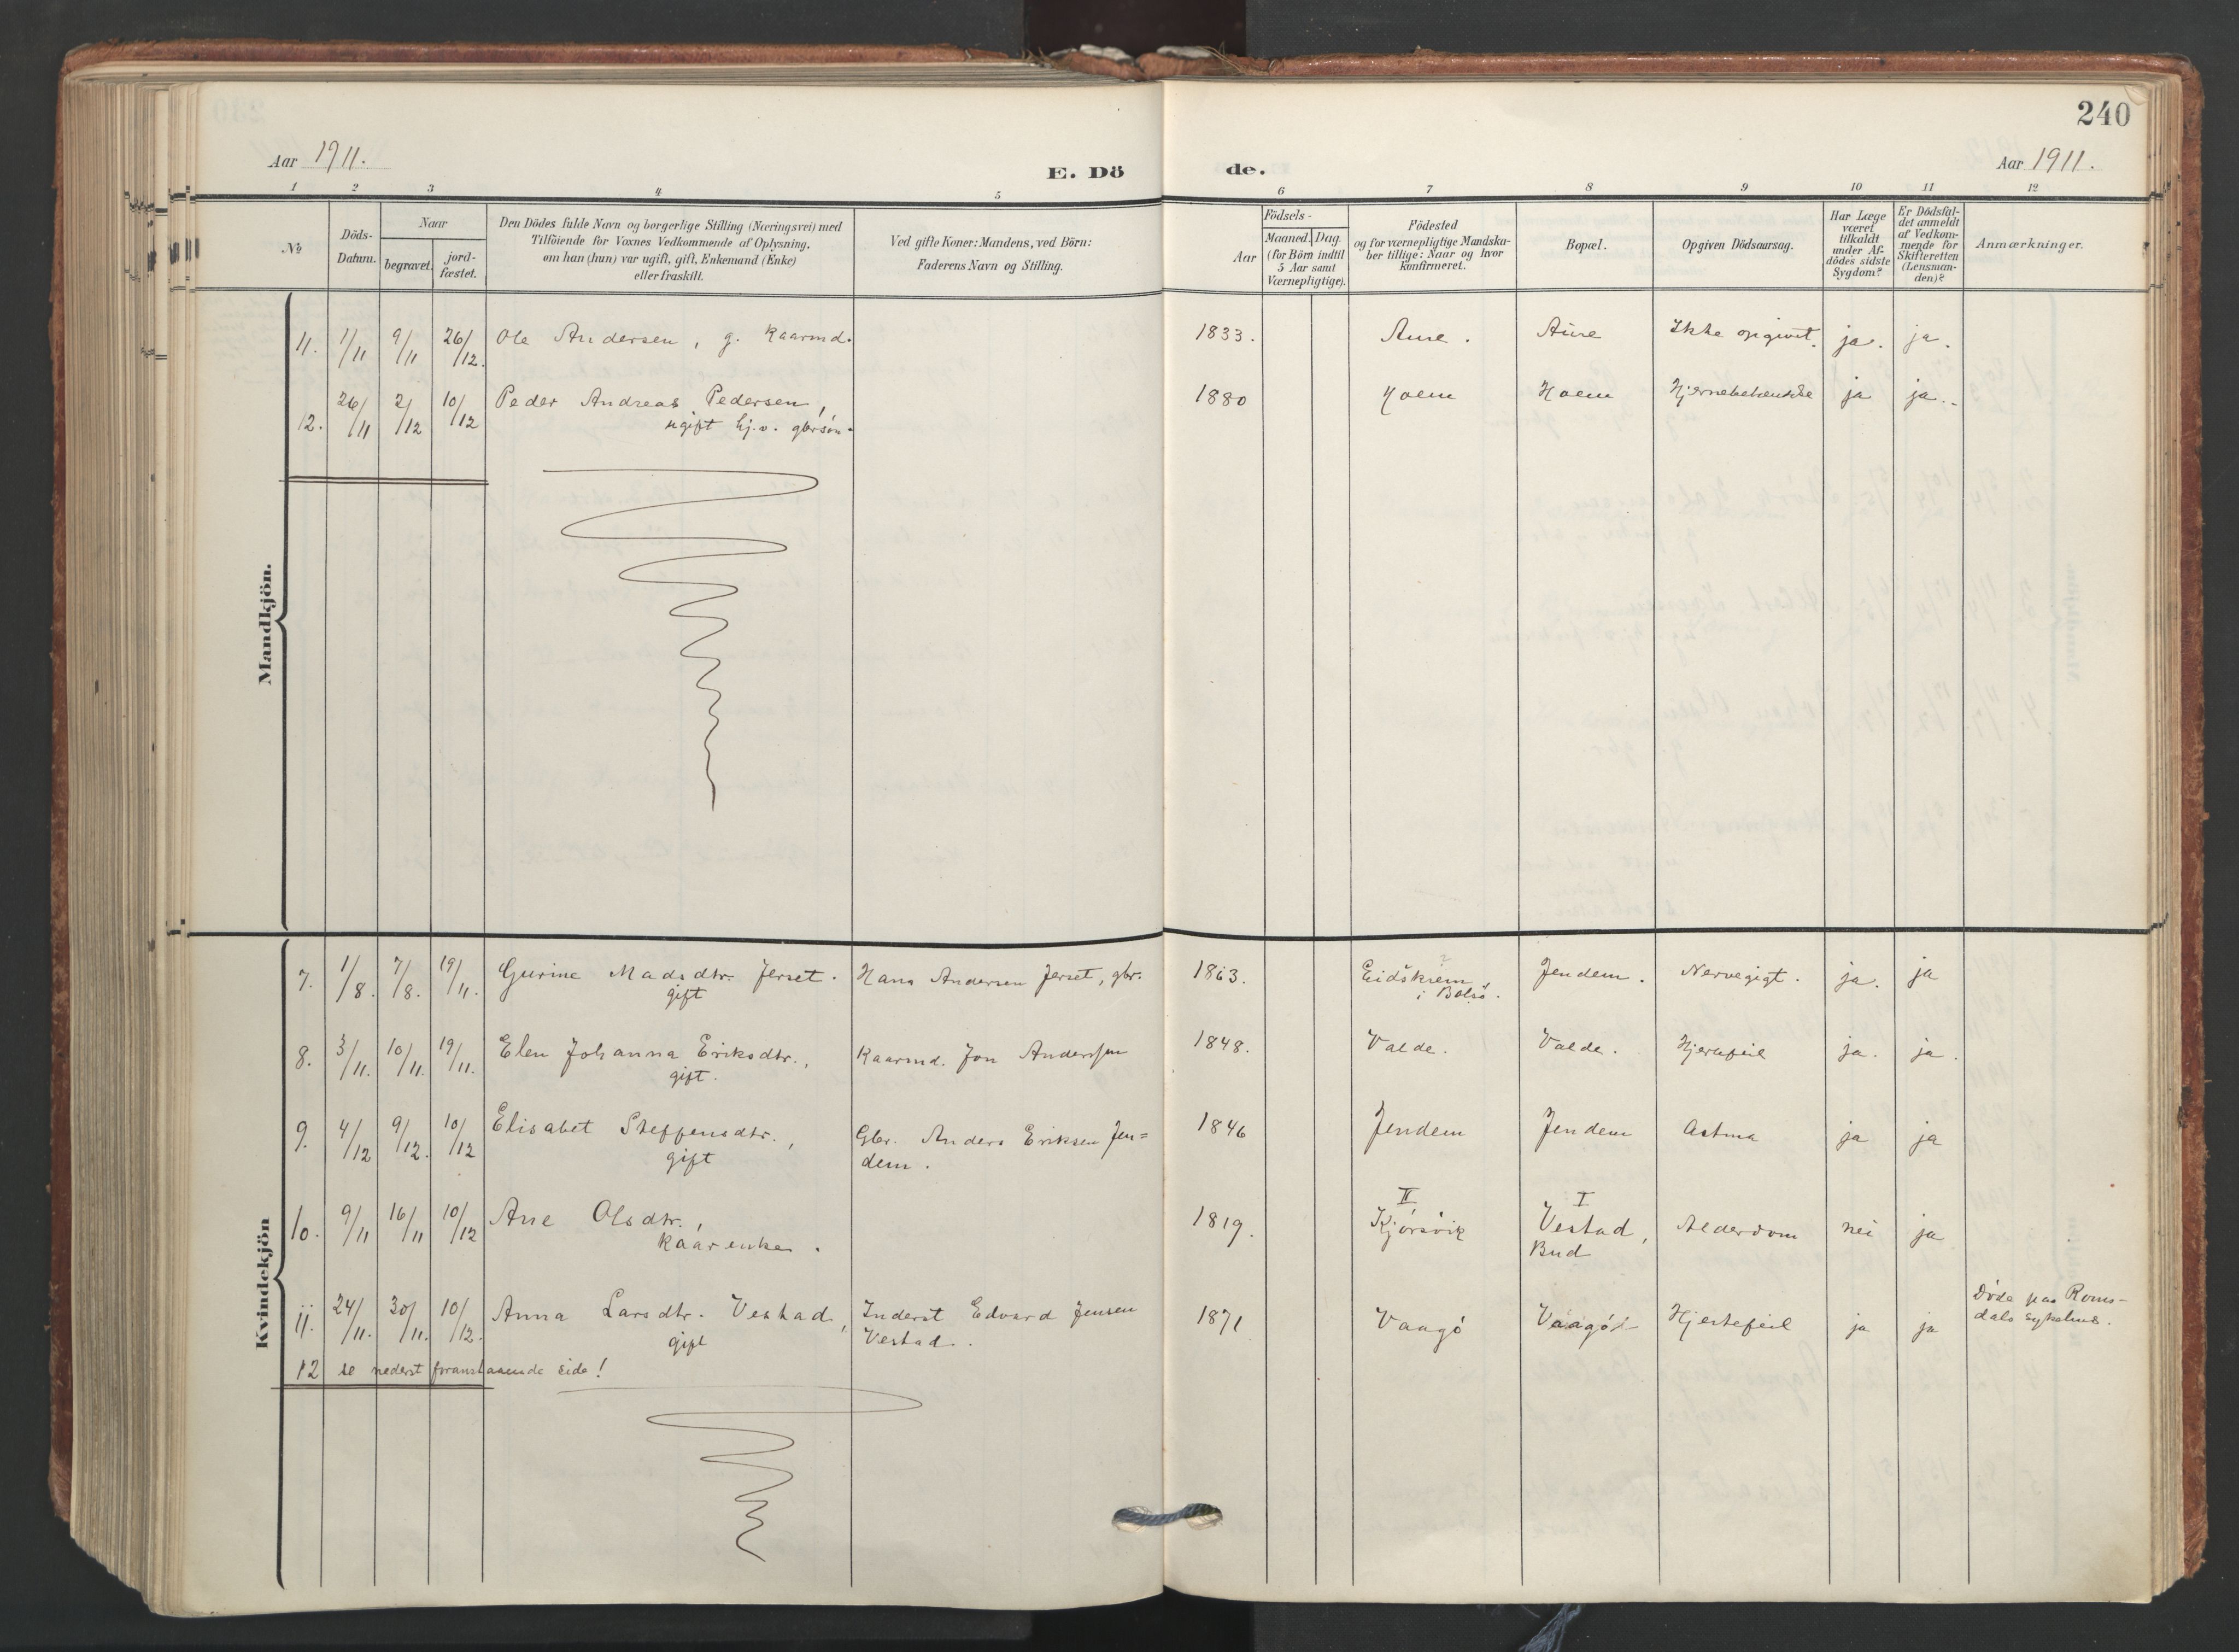 240
Aar 1911.
E. Dö
de.
Aar 1911.
1 2 3 4 5 6 7 8 9 10 11 12
№
Döds-
Datum.
Naar
begravet.
jord-
fæstet.
Den Dödes fulde Navn og borgerlige Stilling (Næringsvei) med
Tilföiende for Voxnes Vedkommende af Oplysning,
om han (hun) var ugift, gift, Enkemand (Enke)
eller fraskilt.
Ved gifte Koner: Mandens, ved Börn:
Faderens Navn og Stilling.
Födsels-
Aar
Maaned. Dag.
(for Börn indtil
5 Aar samt
Værnepligtige).
Födested
og for værnepligtige Mandska-
ber tillige: Naar og hvor
konfirmeret.
Bopæl.
Opgiven Dödsaarsag.
Har Læge
været
tilkaldt
under Af-
dödes sidste
Sygdom?
Er Dödsfal-
det anmeldt
af Vedkom-
mende for
Skifteretten
(Lensman-
den)?
Anmærkninger.
Mandkjön.
11. 1/11 9/11 26/12. Ole Andersen, g. Kaarmd. 1833. Aure. Aure Ikke opgivet. ja. ja.
12. 26/11 2/12 10/12 Peder Andreas Pedersen, 1880 Hoem Hoem ja ja.
ugift hj.v. gbrsön.
Kvindekjön
7. 1/8. 7/8. 19/11. Gurine Madsdtr. Jerset. Hans Andersen Jerset, gbr. 1863. Eidskrem Jendem. Nervegigt. ja. ja
gift i Bolsö.
8. 3/11. 10/11. 19/11. Elen Johanna Eriksdtr., Kaarmd. Jon Anderssen 1848. Valde. Valde. Hjertefeil ja. ja.
gift.
9. 4/12 9/12. 10/12 Elisabet Steffensdtr., Gbr. Anders Eriksen Jen= 1846 Jendem Jendem Astma ja ja
gift dem.
II I
10. 9/11 16/11 10/12 Ane Olsdtr., 1819. Kjörsvik Vestad, Alderdom nei ja
Kaarenke. Bud
11. 24/11. 30/11. 10/12. Anna Larsdtr. Vestad, Inderst Edvard Jensen 1871 Vaagö Vaagö Hjertefeil ja ja Döde paa Roms-
gift Vestad. dals Sykehus.
12 se nederst foranstaaende side!